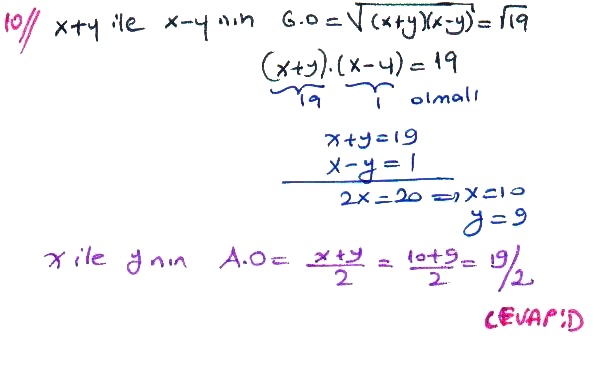 10// x+y ile x-y nin G.O = √(x+y)(x-y) = √19
(x+y).(x-y) = 19
19 1 olmalı
x+y=19
x-y=1
2x=20 => x=10
y=9
x ile y nin A.O = x+y/2 = 10+9/2 = 19/2
CEVAP:D